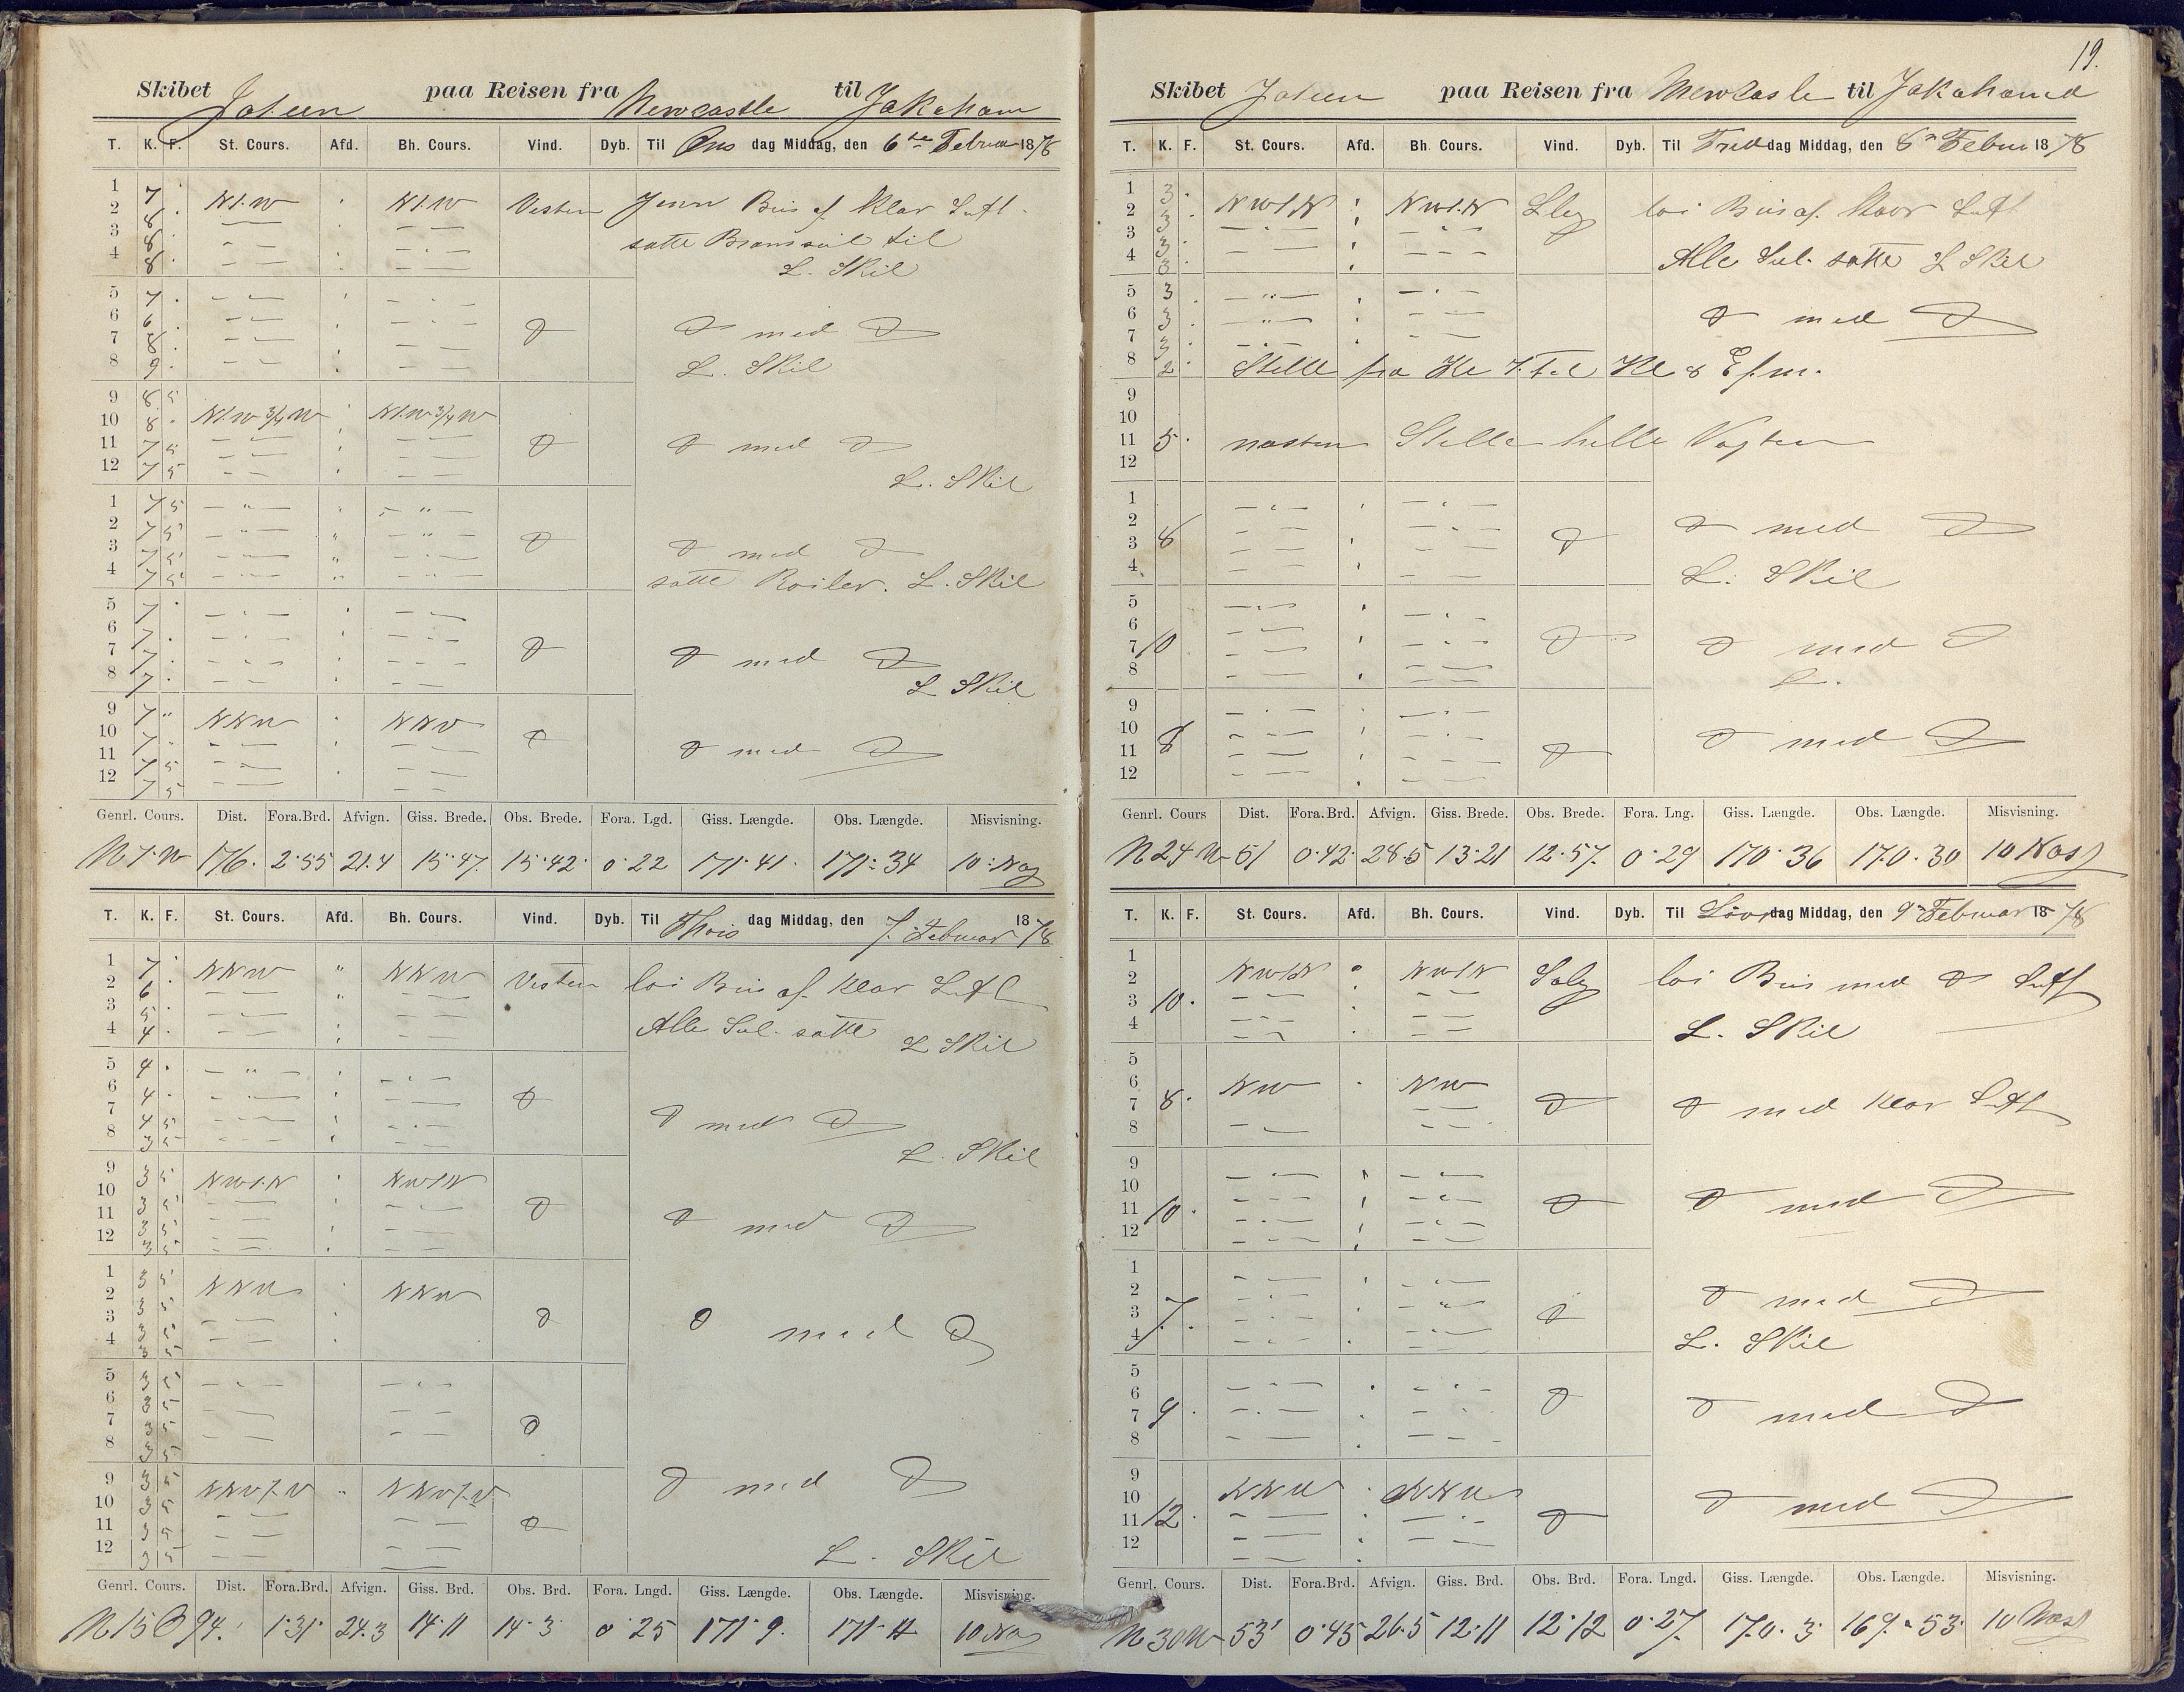 Skibet Joteen paa Reisen fra Newcastle til Jakaham
T. K. F. St. Cours. Afd. Bh. Cours. Vind. Dyb. Til Ons dag Middag, den 6te Februar 1878
1 7 . Nt.W Nt.W Vesten Jevn Bris af Klar Luft
2 8 .
3 8 . satte Bramseil til
4 8 . L. Skil
5 7 .
6 6 .
7 8 . d med d
8 9 . L. Skil
9 8 5 Nt.W 3/4 W Nt.W 3/4 W
10 8 .
11 7 5 d med d
12 7 5 L. Skil
1 7 5
2 7 5
3 7 5 d med d
4 7 5 satte Roiler. L. Skil
5 7 .
6 7 .
7 7 . d med d
8 7 . L Skil
9 7 " NNW NNW
10 7 "
11 7 5 d med d
12 7 5
Genrl. Cours. Dist. Fora.Brd. Afvign. Giss. Brede. Obs. Brede. Fora. Lgd. Giss. Længde. Obs. Længde. Misvisning.
176. 2.55 21.4 15.47. 15.42. 0.22 171.41. 171.34 10
T. K. F. St. Cours. Afd. Bh. Cours. Vind. Dyb. Til Thors dag Middag, den 7. Februar 1878
1 7 . NNW " NNW Vesten loi Bris af Klar Luft
2 6
3 5 . Alle Seil satte
4 4 . L Skil
5 4 .
6 4 .
7 4 5 d med d
8 3 5 L. Skil
9 3 5 NWt.N NWtN
10 3 5
11 3 5 d med d
12 3 5
1 3 5 NNW NNW
2 3 5
3 3 5 d med d
4 3 5
5 3 5
6 3 5
7 3 5
8 3 5
9 3 5 d med d
10 3 5
11 3 5
12 3 5 L. Skil
Genrl. Cours. Dist. Fora.Brd. Afvign. Giss. Brd. Obs. Brd. Fora. Lngd. Giss. Længde. Obs. Længde. Misvisning.
94. 1.31. 24.3 14.11 14.3 0.25 171.9. 171. 10
19.
Skibet Joteen paa Reisen fra Newcasle til Jakahama
T. K. F. St. Cours. Afd. Bh. Cours. Vind. Dyb. Til Freddag Middag, den 8 Februar 1878
1 3 . NWt.N NWt.N loi Bris af. Luft
2 3 .
3 3 .
4 3 . Alle Seil satte L Skil
5 3 .
6 3 . d med d
7 3 .
8 2 . Stille fra Kl 7 til Kl 8 Efm.
9
10
11 5 . næsten Stille hele Vagten
12
1
2 d med d
3 8
4 L. Skil
5
6
7 10 d med d
8
9
10 d med d
11 8
12
Genrl. Cours Dist. Fora.Brd. Afvign. Giss. Brede. Obs. Brede. Fora. Lng. Giss. Længde. Obs. Længde. Misvisning.
N24W 51 0.42. 28.5 13.21 12.57. 0.29 170.36 170.30 10
T. K. F. St. Cours. Afd. Bh. Cours. Vind. Dyb. Til Lover dag Middag, den 9 Februar 1878
1 NWtN NWtN loi Bris med d Luft
2
3 10 .
4 L. Skil
5
6 NW NW
7 8 . d med Klar Luft
8
9
10
11 10 . d med d
12
1
2 d med d
3 7 .
4 L. Skil
5
6
7 9 . d med d
8
9 NNW NNW
10 d med d
11 12 .
12
Genrl. Cours. Dist. Fora.Brd. Afvign. Giss. Brd. Obs. Brd. Fora. Lngd. Giss. Længde. Obs. Længde. Misvisning.
N30W 53' 0.45 26.5 12.11 12.12 0.27. 170.3. 169.53. 10